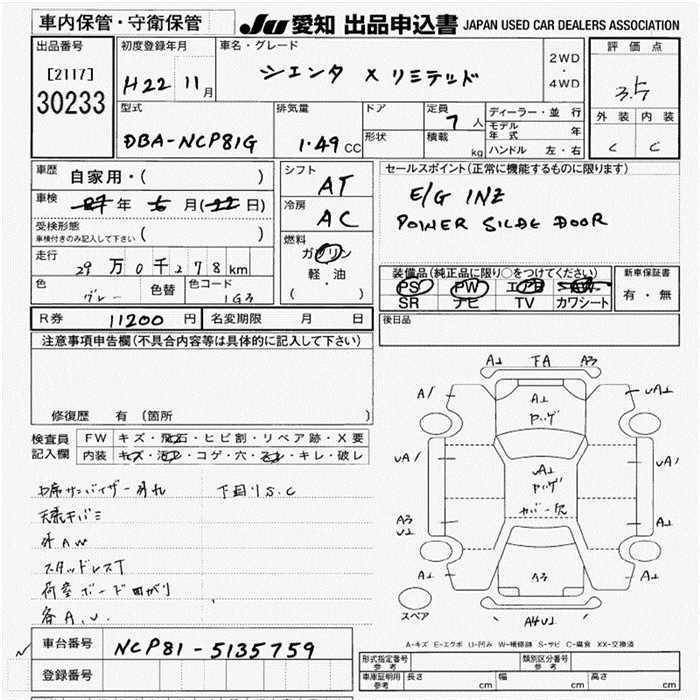 車内保管・守衛保管
JU 愛知 出品申込書 JAPAN USED CAR DEALERS ASSOCIATION
出品番号
[2117]
30233
初度登録年月
H22 11月
車名・グレード
シエンタ X リミテッド
2WD
・
4WD
評価点
3.5
外装 内装
C C
型式
DBA-NCP81G
排気量
1.49CC
ドア
形状
定員
7人
積載
kg
ディーラー・並行
モデル年式 年
ハンドル 左・右
車歴
自家用・( )
車検
年 月( 日)
受検形態
車検付きのみ記入して下さい ( )
走行
29万0千278km
色
グレー
色替
色コード
1G3
シフト
AT
冷房
AC
燃料
ガソリン
軽・油
( )
セールスポイント(正常に機能するものに限ります)
E/G 1NZ
POWER SILDE DOOR
装備品(純正品に限り○をつけてください)
PS PW エアB
SR ナビ TV カワシート
新車保証書
有・無
R券 11200円
名変期限 月 日
後日品
注意事項申告欄(不具合内容等は具体的に記入して下さい)
修復歴 有 (箇所 )
検査員
記入欄
FW キズ・飛石・ヒビ割・リペア跡・X要
内装 キズ・汚れ・コゲ・穴・スレ・キレ・破レ
サンバイザー
下回りS.C
天張キバミ
外AW
スタッドレスT
荷室ボード曲がり
各A.U.
A1 TA A3
A1
ヤハゲ
A1
ヤハゲ
カバー欠
A3
A/
UA1
UA/
UA/
A3
U1
A1
A1
A1
A4U1
スペア
A-キズ E-エクボ U-凹み W-補修跡 S-サビ C-腐食 XX-交換済
車台番号
NCP81-5135759
登録番号
形式指定番号
参考
類別区分番号
参考
車庫証明用
参考
長さ cm 幅 cm 高さ cm